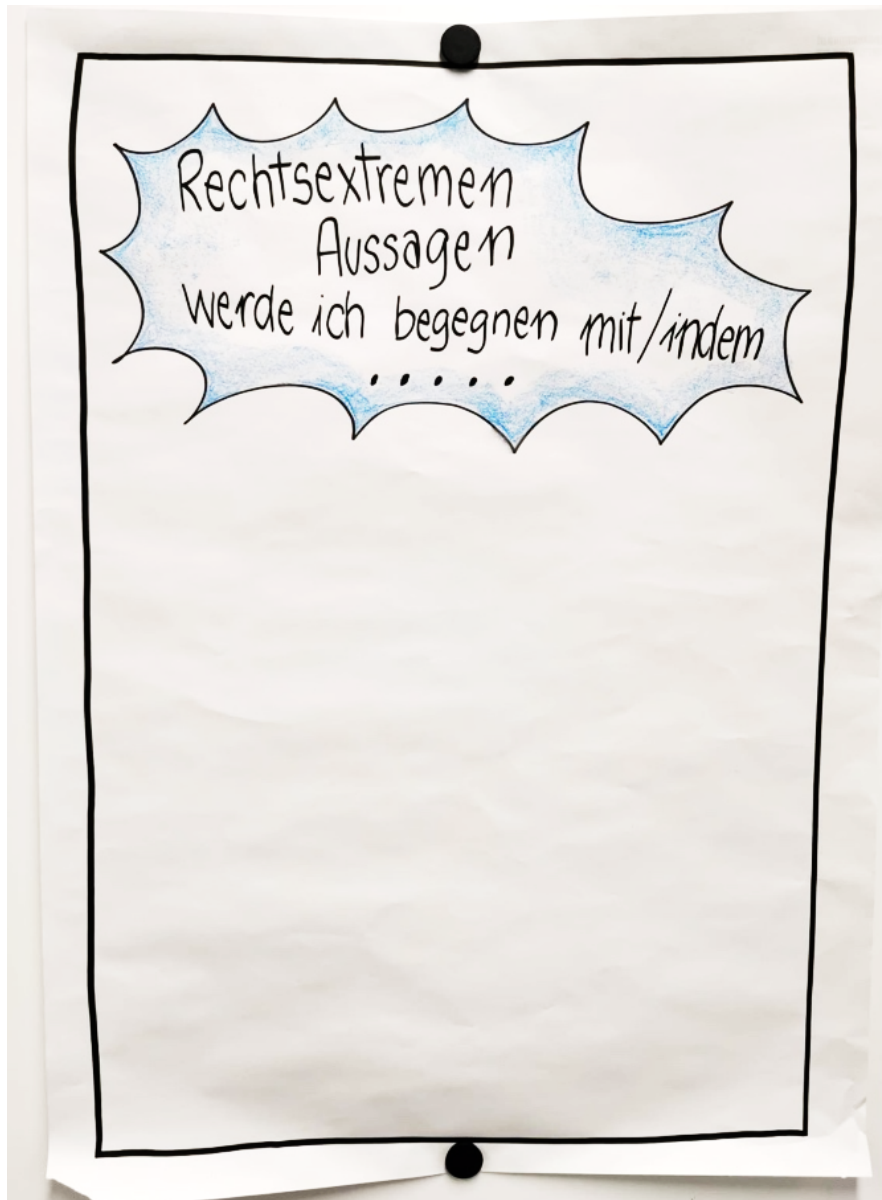 Rechtsextremen
Aussagen
werde ich begegnen mit/indem
.....